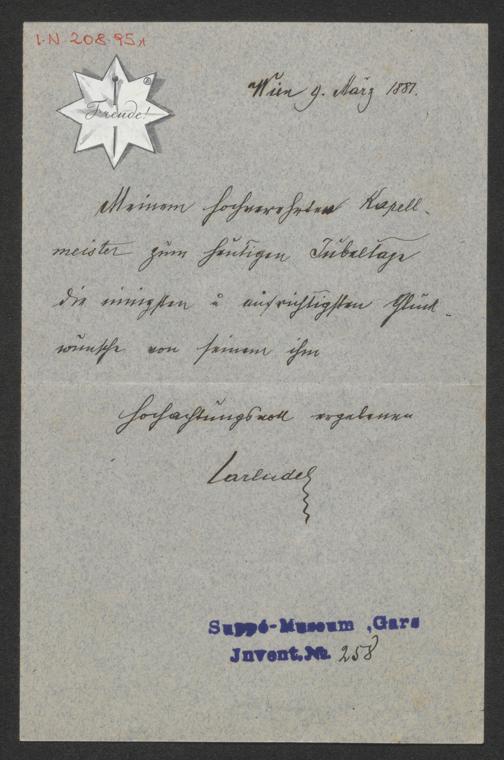 I.N. 208.951
Freude!
Wien 9. März 1881.
Meinem hochverehrten Kapell-
meister zum heutigen Jubeltage
die innigsten u aufrichtigsten Glück-
wünsche von seinem ihm
hochachtungsvoll ergebenen
Suppé-Museum, Gars
Invent.№ 258